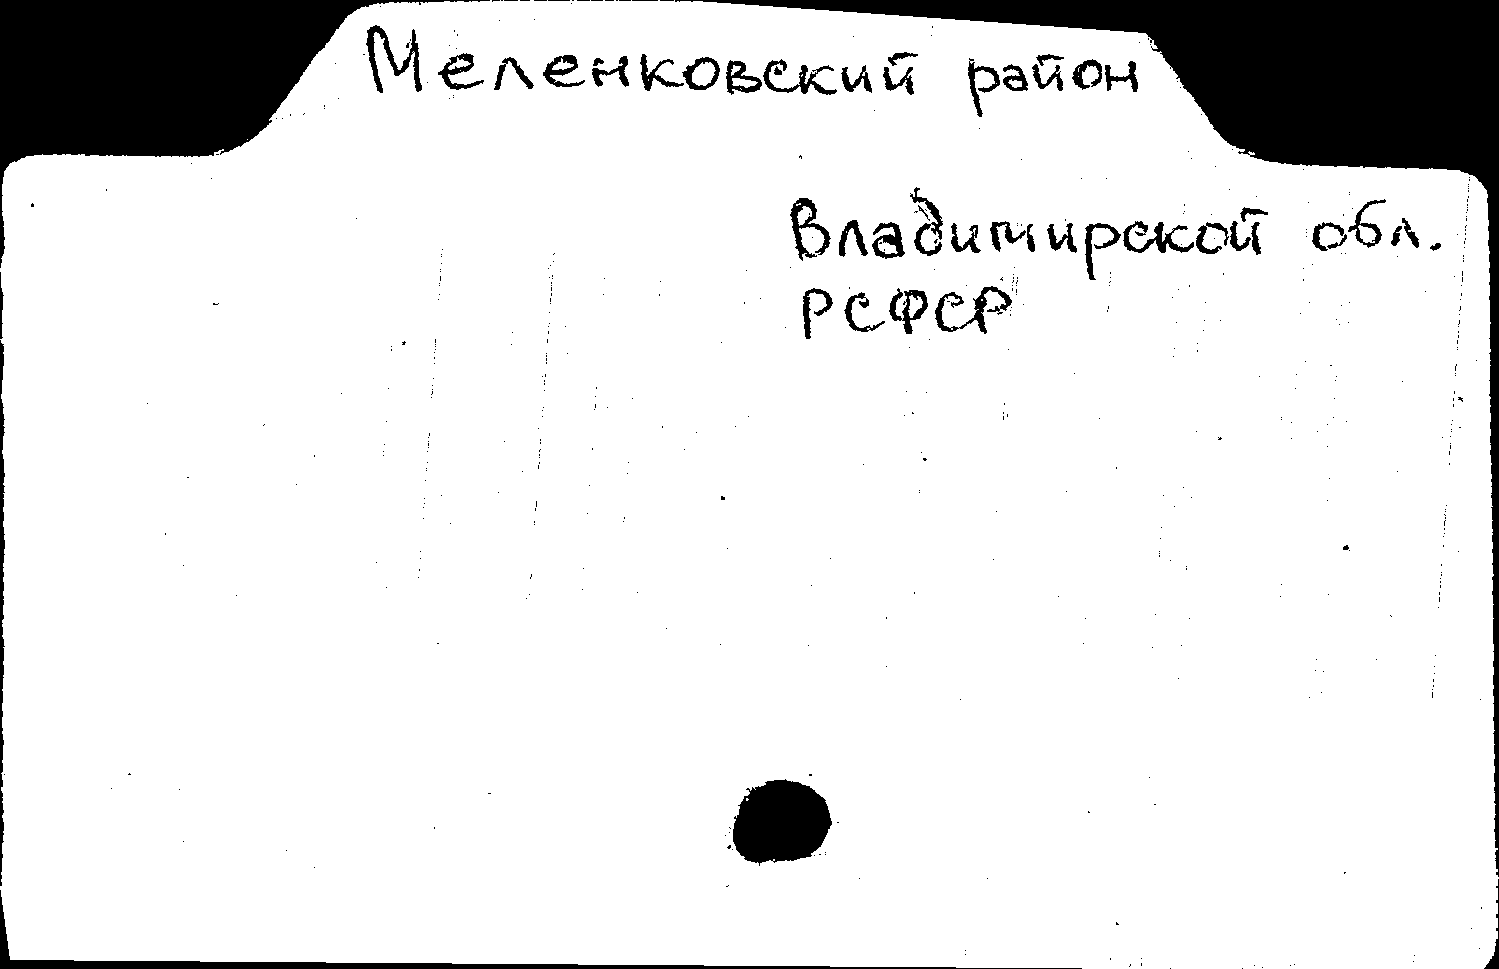 Меленковский район
Владимирской обл.
РСФСР